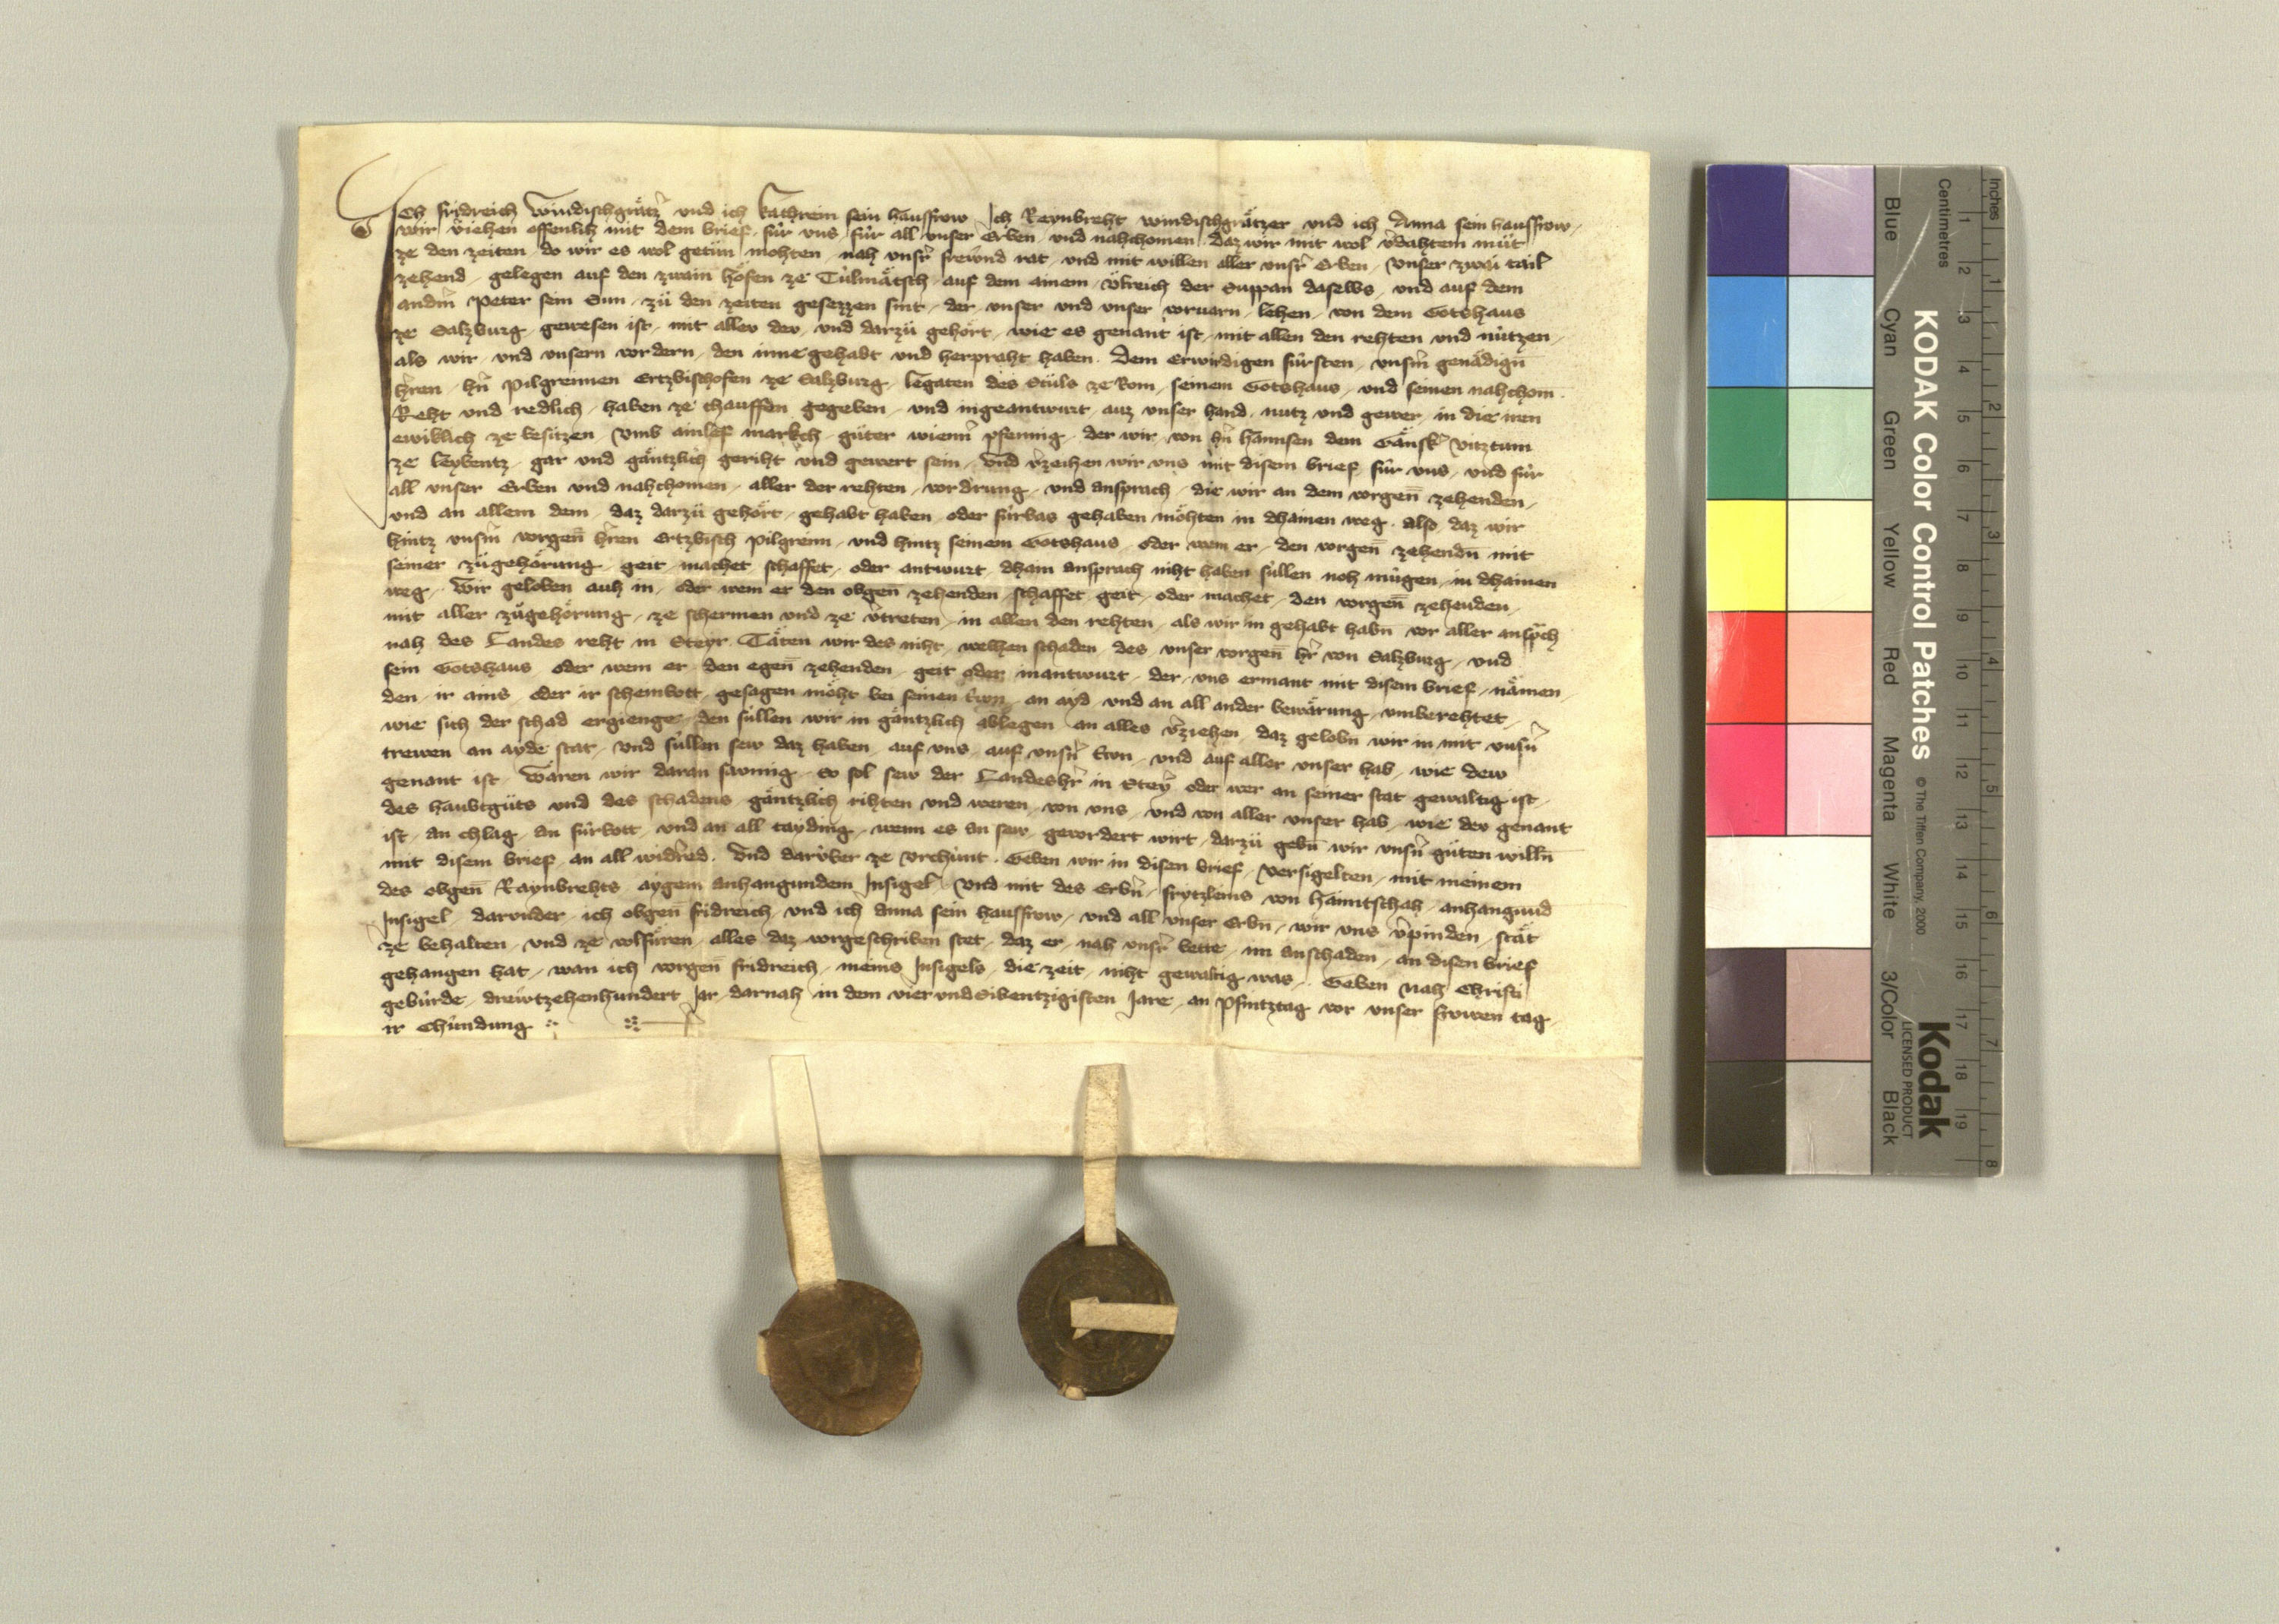 Ich Fridreich Windischgrätzer und ich Kathrein sein hausfrow Ich Reynbreht windischgrätzer und ich Anna sein hausfrow
wir viehen offenlich mit dem brief für uns für all unser Erben und nahchomen daz wir mit wol v̄dahtem mut
ze den zeiten do wir es wol getun mohten nah unsr̄ frewnd rat und mit willen aller unsr̄ Erben unser zwai tail
zehend gelegen auf den zwain höfen ze Tülmätsch auf dem ainem Ülreich der Suppan daselbs und auf dem
andm̄ Peter sein Sun zu den zeiten gesezzen sint der unser und unser voruarn lehen von dem Gotshaus
ze Salzburg gewesen ist mit aller dew und darzu gehört wie es genant ist mit allen den rehten und nützen
als wir und unsern vordern den inne gehabt und herpraht haben Dem Erwirdigen fürsten unsm̄ genädign̄
hr̄ren hn̄ Pilgreimen Ertzbischofen ze Salzburg legaten des Stuls ze Rom seinem Gotshaus und seinen nahchom
Reht und redlich haben ze chauffen gegeben und ingeantwurt auz unser hand nutz und gewer in die iren
ewiklich ze besitzen umb ainlef markch guter wienn̄ pfennig der wir von hn̄ hannsen dem Gänsk̄ vitztum
ze leybentz gar und gäntzlich geriht und gewert sein und v̄zeihen wir uns mit disem brief für uns und für
all unser Erben und nahchomen aller der rehten vordrung und ansprach die wir an dem vorgen̄ zehenden
und an allem dem daz darzu gehört gehabt haben oder fürbas gehaben möhten in dhainen weg also daz wir
hintz unsm̄ vorgen̄ hr̄ren Ertzbisch Pilgreim und hintz seinem Gotshaus oder wem er den vorgen̄ zehendn̄ mit
seiner zugehörung geit machet schaffet oder antwurt dhain ansprach niht haben süllen noh mügen in dhainen
weg wir geloben auh in oder wem er den obgen̄ zehenden schaffet geit oder machet den vorgen̄ zehenden
mit aller zugehörung ze schermen und ze v̄treten in allen den rehten als wir in gehabt habn̄ vor aller anspach
nah des Landes reht in Steyr Täten wir des niht welhen schaden des unser vorgen̄ hr̄ von Salzburg und
sein Gotshaus oder wem er den egen̄ zehenden geit oder inantwurt der uns ermant mit disem brief nämen
den ir ains oder ir scheinbott gesagen möht bei seinen trwn an ayd und an all ander bewärung unberehtet
wie sich der schad ergienge den süllen wir in gäntzlich ablegen an alles v̄ziehen daz gelobn̄ wir in mit unsn̄
trewen an ayde stat und süllen sew daz haben auf uns auf unsn̄ trwn und auf aller unser hab wie dew
genant ist wären wir daran sawmig So sol sew der Landeshr̄ in Steyr̄ oder wer an seiner stat gewaltig ist
des haubtguts und des schadens gäntzlich rihten und weren von uns und von aller unser hab wie dew genant
ist an chlag an fürbott und an all tayding wenn es an sew gevordert wirt darzu gebn̄ wir unsn̄ guten willn̄
mit disem brief an all widr̄red und darüber ze vrchünt Geben wir in disen brief versigelten mit meinem
des obgen̄ Raynbrehts aygem anhangundem Insigel und mit des Erbn̄ frytzleins von hanntschah anhangund
Insigel darunder ich obgen̄ fridreich und ich anna sein hausfrow und all unser Erbn̄ wir uns v̄pinden stät
ze behalten und ze volfüren alles daz vorgeschriben stet daz er nah unsr̄ bette im anschaden an disen brief
gehangen hat wan ich vorgen̄ fridreich meins Insigels die zeit niht gewaltig was Geben Nah Christi
gebürde drewtzehenhundert Jar darnah in dem vier und Sibentzigisten Jare an Pfintztag vor unser frowen tag
ir Chündung
KODAK Color Control Patches © The Tiffen Company, 2000
Kodak
LICENSED PRODUCT
Blue
Cyan
Green
Yellow
Red
Magenta
White
3/Color
Black
Centimetres
1 2 3 4 5 6 7 8 9 10 11 12 13 14 15 16 17 18 19
Inches
1 2 3 4 5 6 7 8